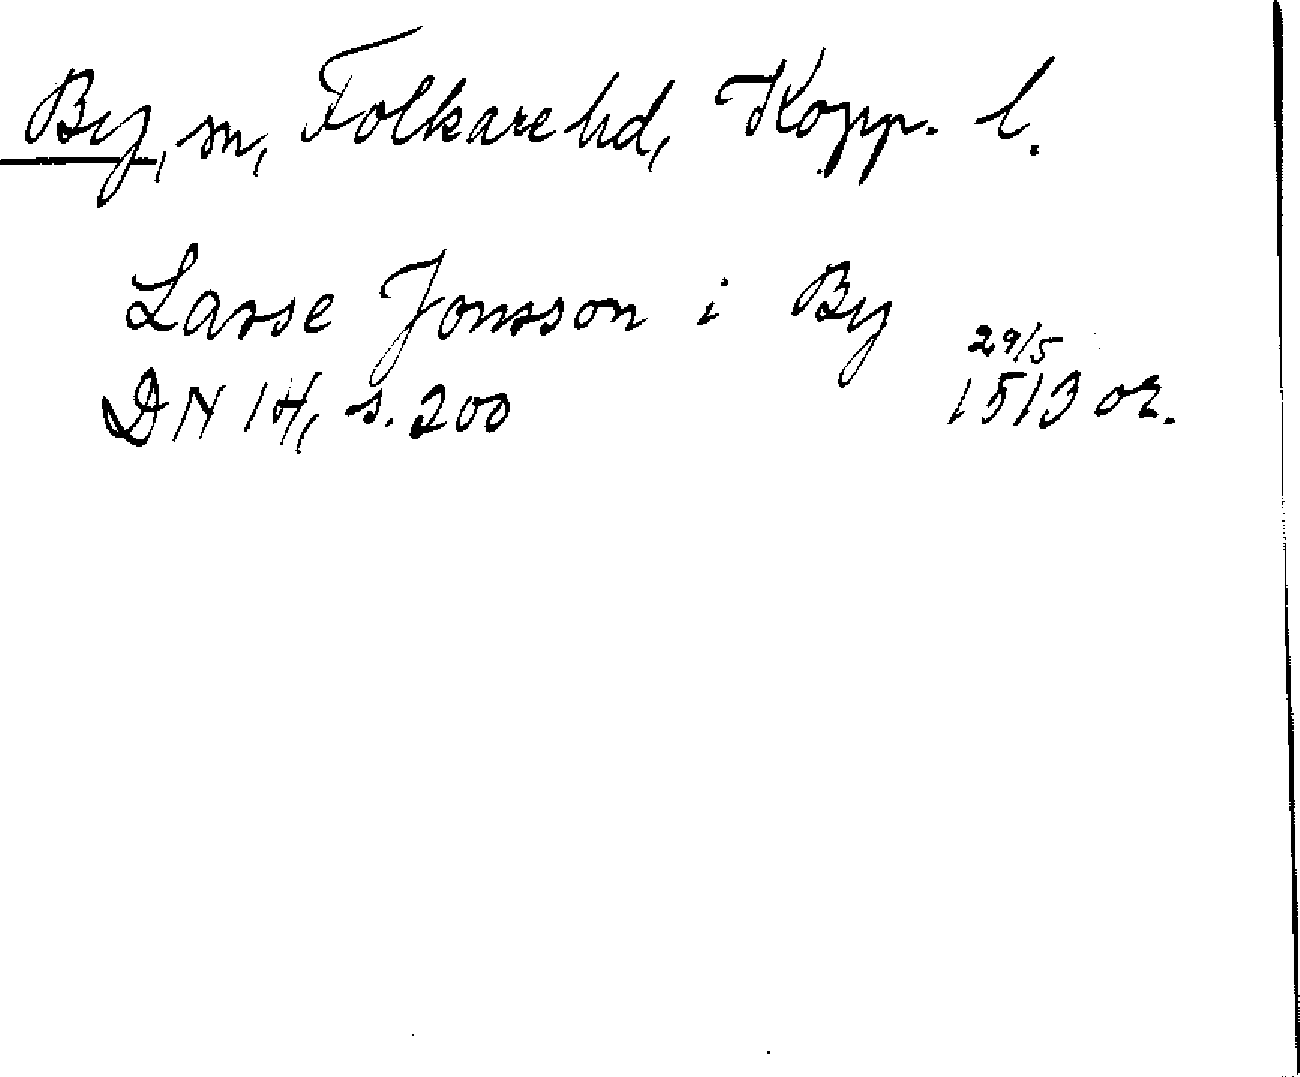 By, sn, Folkare hd, Kopp. l.
Lasse Jonsson i By
29/5
DN 14, s. 200 1513 or.